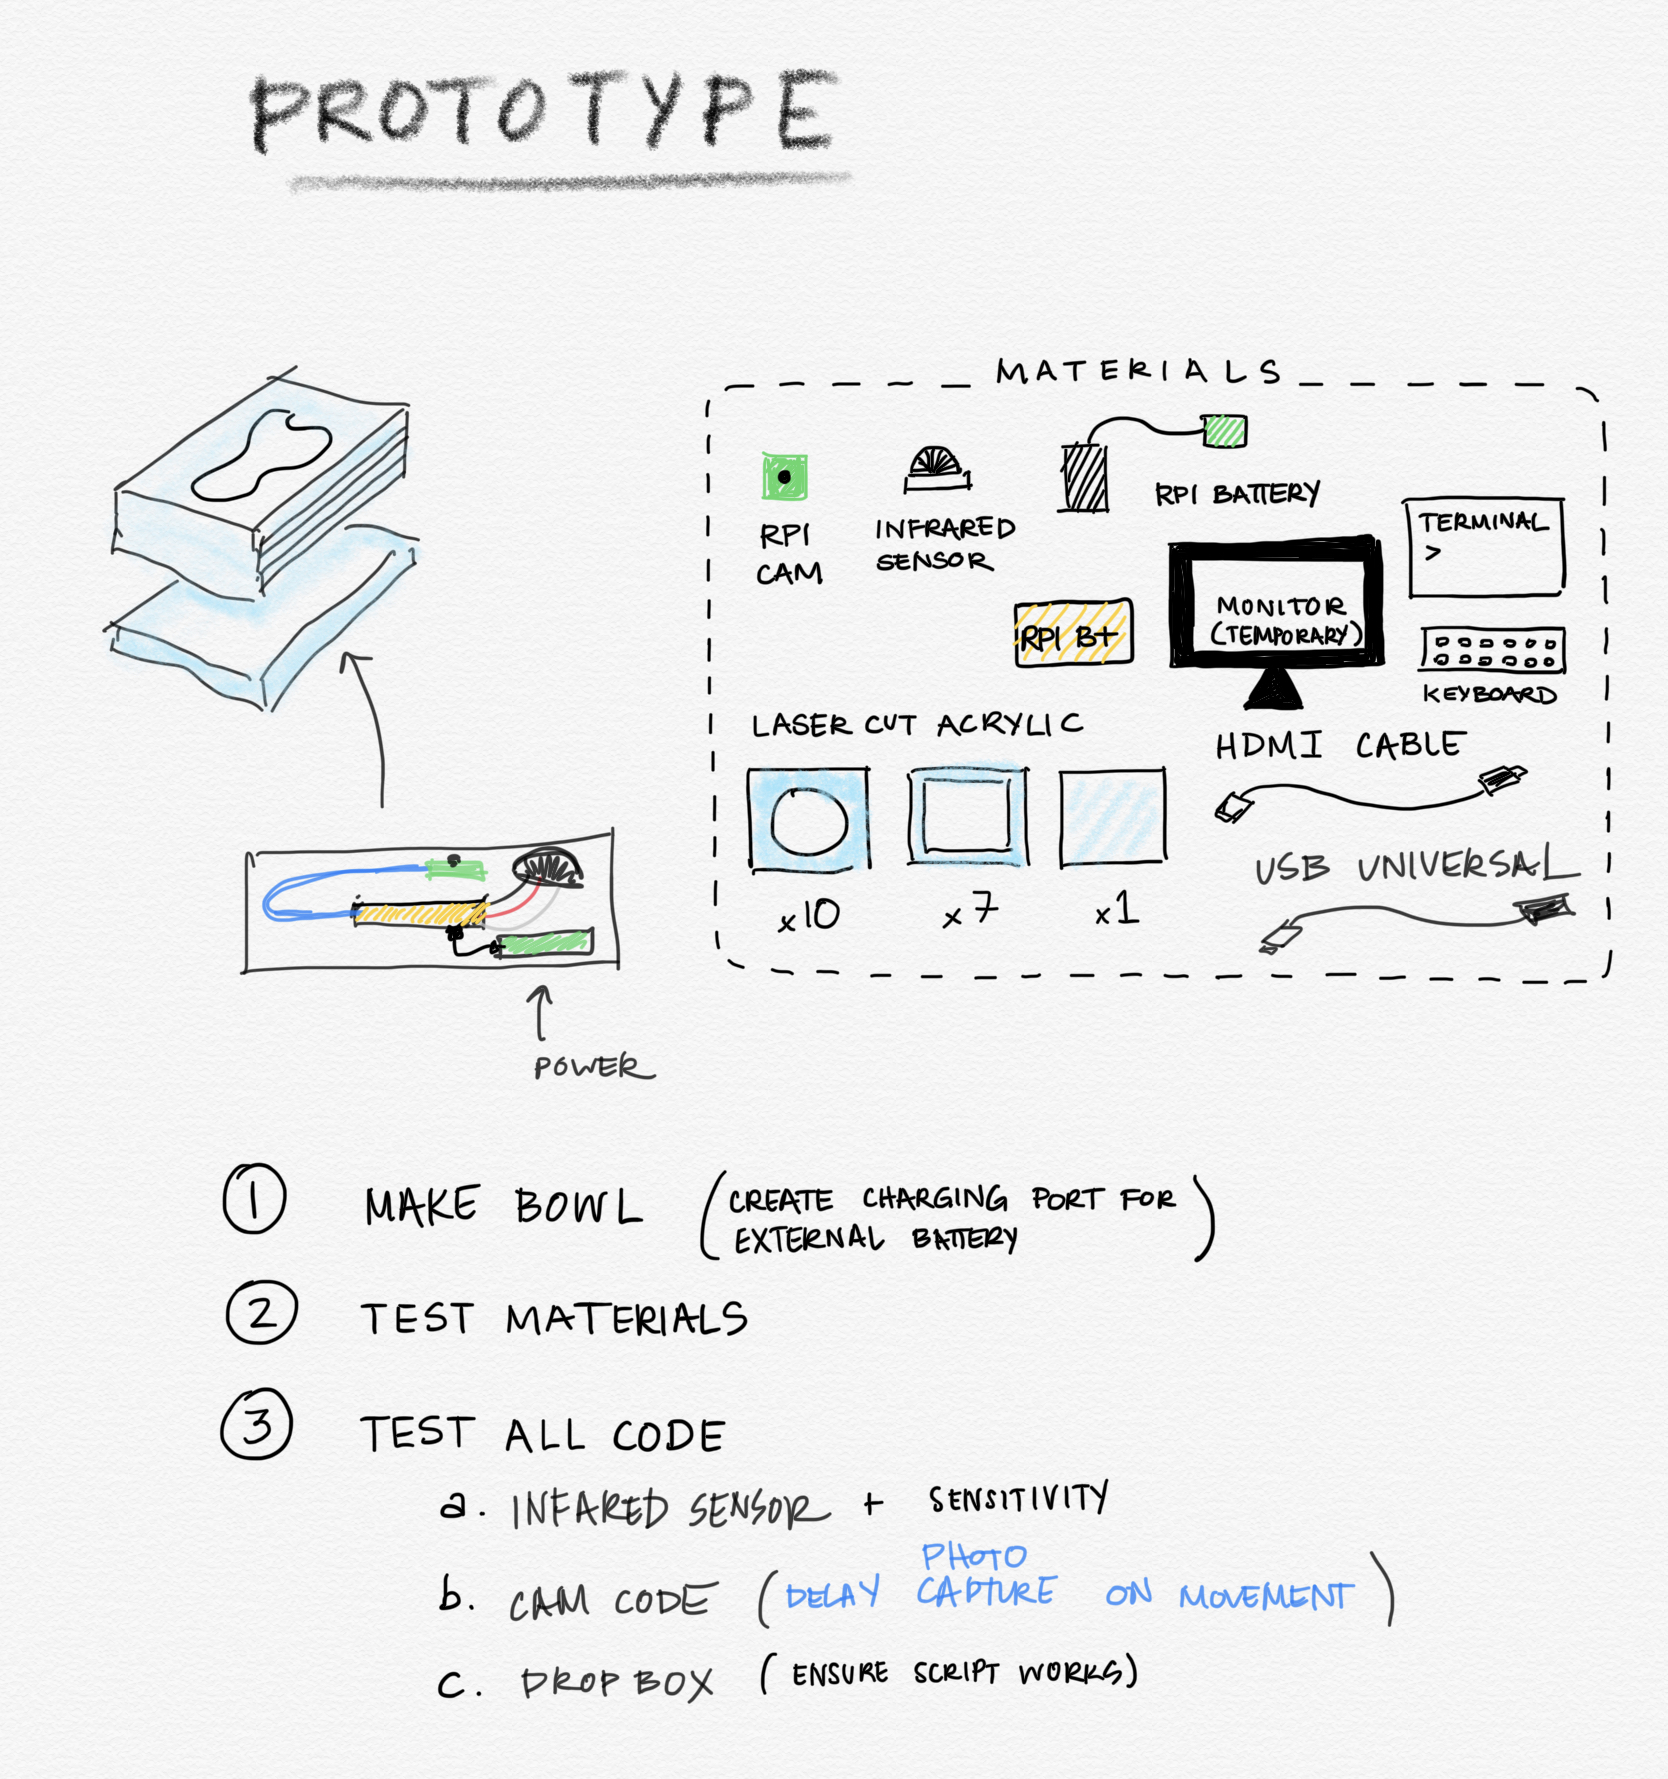 PROTOTYPE
MATERIALS
RPI
CAM
INFRARED
SENSOR
RPI BATTERY
TERMINAL
>
RPI B+
MONITOR
(TEMPORARY)
KEYBOARD
LASER CUT ACRYLIC
x10
x7
x1
HDMI CABLE
USB UNIVERSAL
POWER
1 MAKE BOWL (CREATE CHARGING PORT FOR
EXTERNAL BATTERY)
2 TEST MATERIALS
3 TEST ALL CODE
a. INFARED SENSOR + SENSITIVITY
PHOTO
b. CAM CODE (DELAY CAPTURE ON MOVEMENT)
c. DROPBOX (ENSURE SCRIPT WORKS)